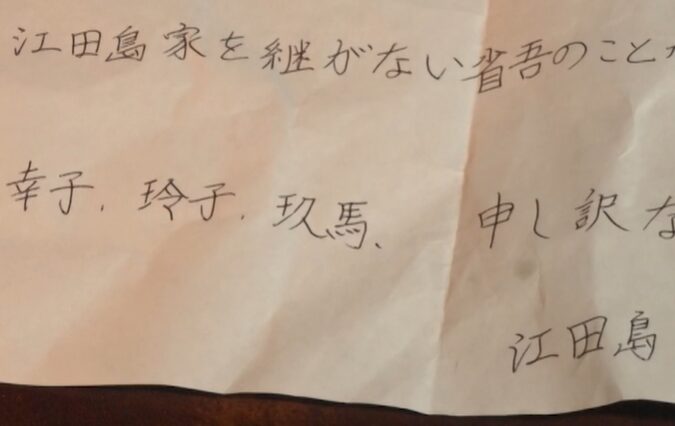 江田島家を継がない省吾のこと
幸子、玲子、玖馬、 申し訳な
江田島